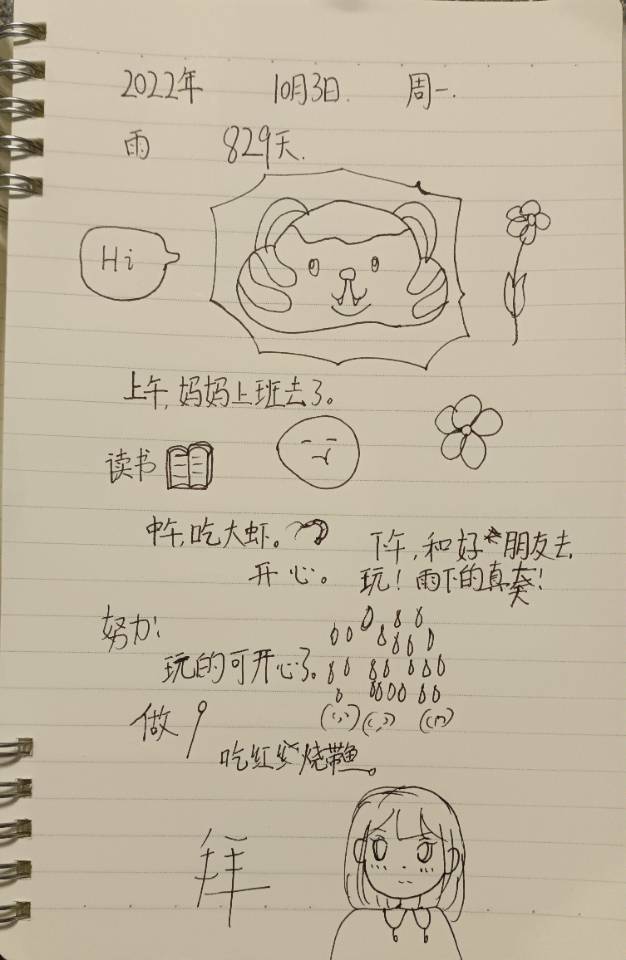 2022年 10月3日. 周一.
雨 829天.
Hi
上午,妈妈上班去了。
读书
中午,吃大虾。
开心。
下午,和好朋友去
玩!雨下的真大!
努力!
玩的可开心了。
做
吃红烧带鱼。
拜